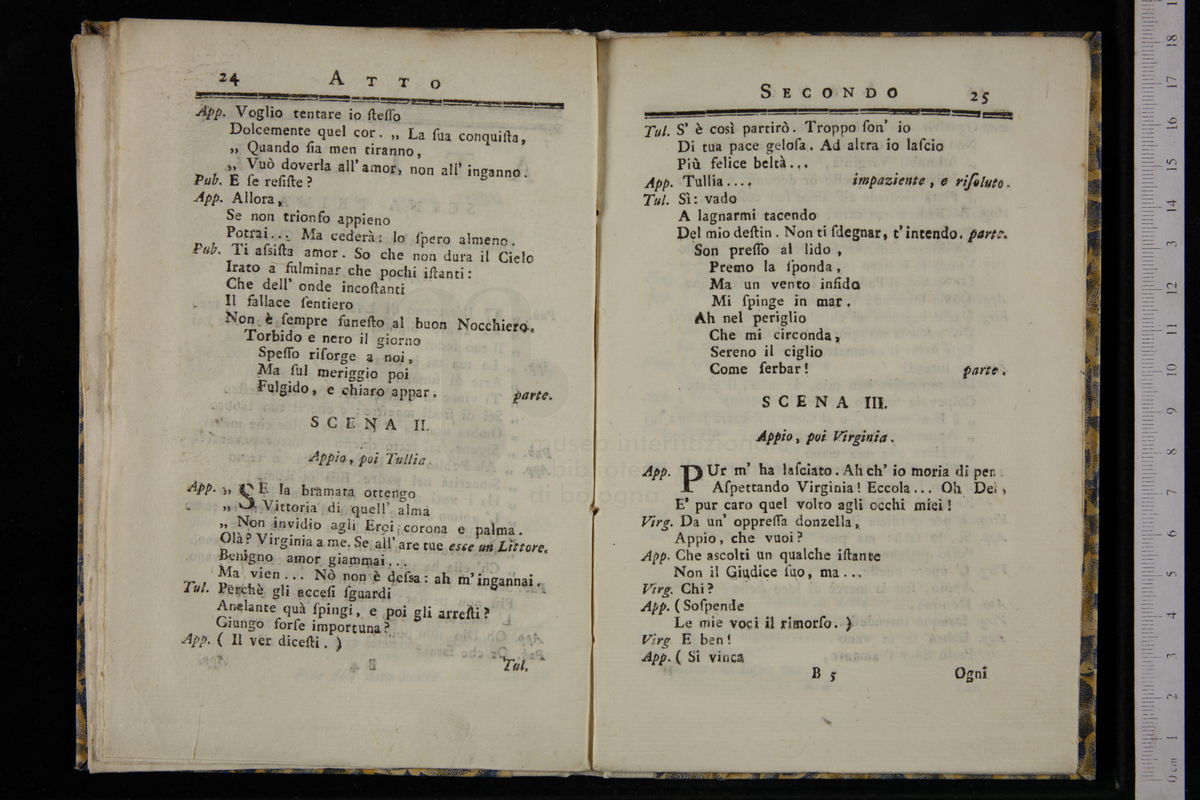 24 ATTO
App. Voglio tentare io ſteſſo
Dolcemente quel cor. „ La ſua conquiſta,
„ Quando ſia men tiranno,
„ Vuò doverla all' amor, non all' inganno.
Pub. E ſe reſiſte?
App. Allora,
Se non trionfo appieno
Potrai... Ma cederà: lo ſpero almeno.
Pub. Ti aſsiſta amor. So che non dura il Cielo
Irato a fulminar che pochi iſtanti:
Che dell' onde incoſtanti
Il fallace ſentiero
Non è ſempre funeſto al buon Nocchiero.
Torbido e nero il giorno
Speſſo riſorge a noi,
Ma ſul meriggio poi
Fulgido, e chiaro appar. parte.
SCENA II.
Appio, poi Tullia.
App. „ SE la bramata ottengo
„ Vittoria di quell' alma
„ Non invidio agli Eroi corona e palma.
Olà? Virginia a me. Se all' are tue esce un Littore.
Benigno amor giammai...
Ma vien... Nò non è deſsa: ah m' ingannai.
Tul. Perchè gli acceſi ſguardi
Anelante quà ſpingi, e poi gli arreſti?
Giungo forſe importuna?
App. ( Il ver diceſti. )
Tul.
SECONDO 25
Tul. S' è così partirò. Troppo ſon' io
Di tua pace geloſa. Ad altra io laſcio
Più felice beltà...
App. Tullia.... impaziente, e riſoluto.
Tul. Sì: vado
A lagnarmi tacendo
Del mio deſtin. Non ti ſdegnar, t' intendo. parte.
Son preſſo al lido,
Premo la ſponda,
Ma un vento infido
Mi ſpinge in mar.
Ah nel periglio
Che mi circonda,
Sereno il ciglio
Come ſerbar! parte.
SCENA III.
Appio, poi Virginia.
App. PUr m' ha laſciato. Ah ch' io moria di pena
Aſpettando Virginia! Eccola... Oh Dei,
E' pur caro quel volto agli occhi miei!
Virg. Da un' oppreſſa donzella,
Appio, che vuoi?
App. Che aſcolti un qualche iſtante
Non il Giudice ſuo, ma...
Virg. Chi?
App. ( Soſpende
Le mie voci il rimorſo. )
Virg E ben!
App. ( Si vinca
B 5 Ogni